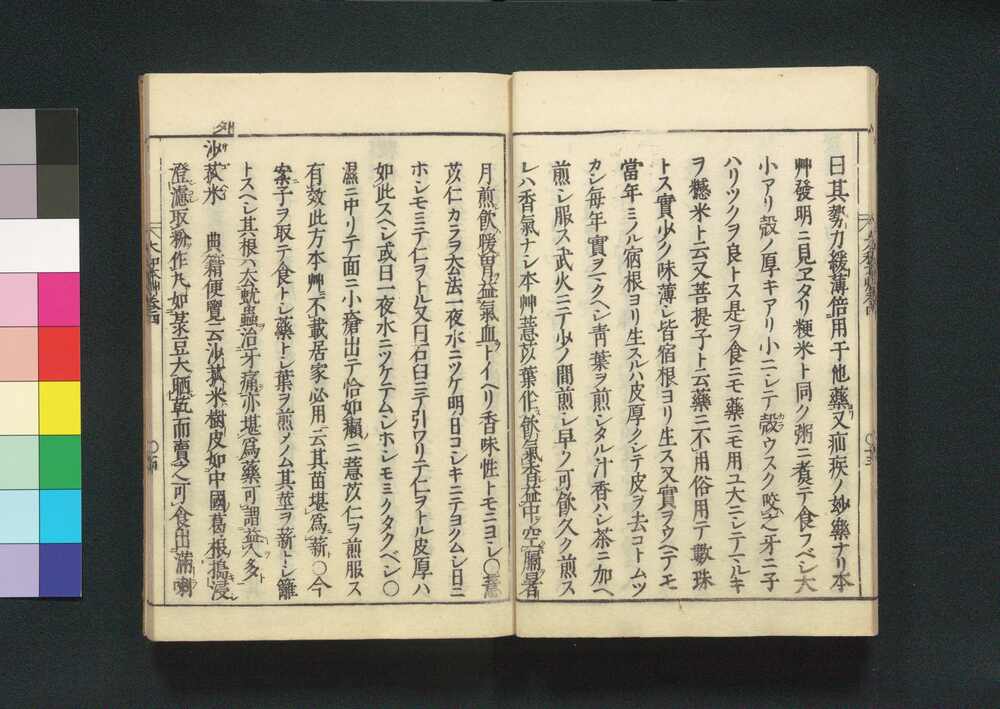 曰其勢力緩薄倍用于他藥又疝疾ノ妙藥ナリ本
艸發明ニ見ヱタリ粳米ト同ク粥ニ煮テ食フベシ大
小アリ殻ノ厚キアリ小ニシテ殻ウスク咬之牙ニ子
ハリツクヲ良トス是ヲ食ニモ藥ニモ用ユ大ニシテマルキ
ヲ𥽇米ト云又菩提子ト云藥ニ不用俗用テ數珠
トス實少ク味薄シ皆宿根ヨリ生ス又實ヲウヘテモ
當年ミノル宿根ヨリ生スルハ皮厚クシテ皮ヲ去コトムツ
カシ毎年實ヲマクヘシ靑葉ヲ煎シタル汁香ハシ茶ニ加ヘ
煎シ服ス武火ニテ少ノ間煎シ早ク可飮久ク煎ス
レハ香氣ナシ本艸薏苡葉作飮氣香益中空膈暑
月煎飮暖胃益氣血トイヘリ香味性トモニヨシ〇薏
苡仁カラヲ去法一夜水ニツケ明日コシキニテヨクムシ日ニ
ホシモミテ仁ヲトル又曰石臼ニテ引ワリテ仁ヲトル皮厚ハ
如此スヘシ或曰一夜水ニツケテムシホシモミクタクベシ〇
濕ニ中リテ面ニ小瘡出テ恰如癩ニ薏苡仁ヲ煎服ス
有效此方本艸ニ不載居家必用ニ云其苗堪爲薪〇今
案子ヲ取テ食トシ藥トシ葉ヲ煎ノム其莖ヲ薪トシ籬
トスヘシ其根ハ去蚘蟲治牙痛亦堪爲藥可謂益人多
外
沙菰米 典籍便覽云沙菰米樹皮如中國葛根搗浸
澄濾取粉作丸如菉豆大晒乾而賣之可食出滿喇
大和本艸卷四
〇十三
大和本艸卷四
〇十四